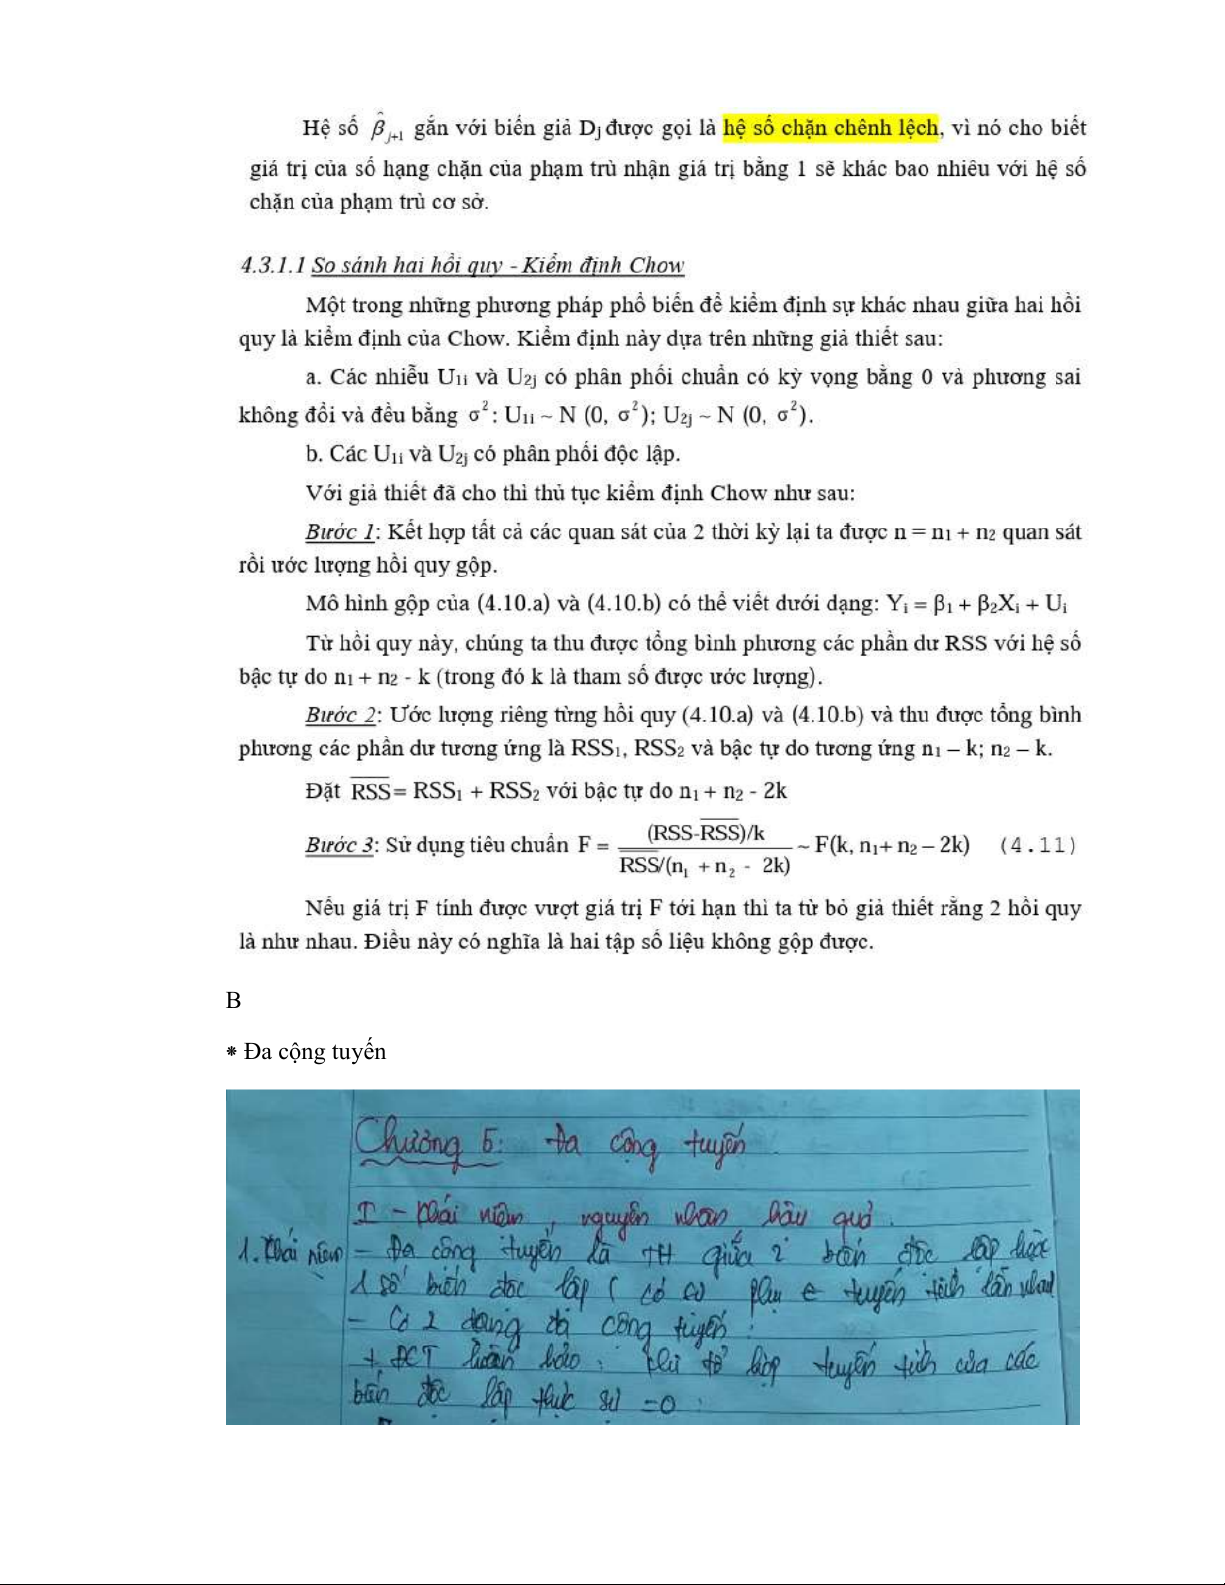 Hệ số β̂j+1 gắn với biến giả Dj được gọi là hệ số chặn chênh lệch, vì nó cho biết
giá trị của số hạng chặn của phạm trù nhận giá trị bằng 1 sẽ khác bao nhiêu với hệ số
chặn của phạm trù cơ sở.
4.3.1.1 So sánh hai hồi quy - Kiểm định Chow
Một trong những phương pháp phổ biến để kiểm định sự khác nhau giữa hai hồi
quy là kiểm định của Chow. Kiểm định này dựa trên những giả thiết sau:
a. Các nhiễu U1i và U2j có phân phối chuẩn có kỳ vọng bằng 0 và phương sai
không đổi và đều bằng σ²: U1i ~ N (0, σ²); U2j ~ N (0, σ²).
b. Các U1i và U2j có phân phối độc lập.
Với giả thiết đã cho thì thủ tục kiểm định Chow như sau:
Bước 1: Kết hợp tất cả các quan sát của 2 thời kỳ lại ta được n = n1 + n2 quan sát
rồi ước lượng hồi quy gộp.
Mô hình gộp của (4.10.a) và (4.10.b) có thể viết dưới dạng: Yi = β1 + β2Xi + Ui
Từ hồi quy này, chúng ta thu được tổng bình phương các phần dư RSS với hệ số
bậc tự do n1 + n2 - k (trong đó k là tham số được ước lượng).
Bước 2: Ước lượng riêng từng hồi quy (4.10.a) và (4.10.b) và thu được tổng bình
phương các phần dư tương ứng là RSS1, RSS2 và bậc tự do tương ứng n1 – k; n2 – k.
Đặt R̅S̅S̅ = RSS1 + RSS2 với bậc tự do n1 + n2 - 2k
Bước 3: Sử dụng tiêu chuẩn F = (RSS-R̅S̅S̅)/k / R̅S̅S̅/(n1 + n2 - 2k) ~ F(k, n1+ n2 – 2k) (4.11)
Nếu giá trị F tính được vượt giá trị F tới hạn thì ta từ bỏ giả thiết rằng 2 hồi quy
là như nhau. Điều này có nghĩa là hai tập số liệu không gộp được.
B
* Đa cộng tuyến
Chương 5: Đa cộng tuyến
I - Khái niệm, nguyên nhân hậu quả.
1. Khái niệm - Đa cộng tuyến là TH giữa 2 biến độc lập hoặc
1 số biến độc lập có phụ tuyến tính lẫn nhau
- Có 2 dạng đa cộng tuyến:
+ ĐCT hoàn hảo: khi tổ hợp tuyến tính của các
biến độc lập thực sự =0